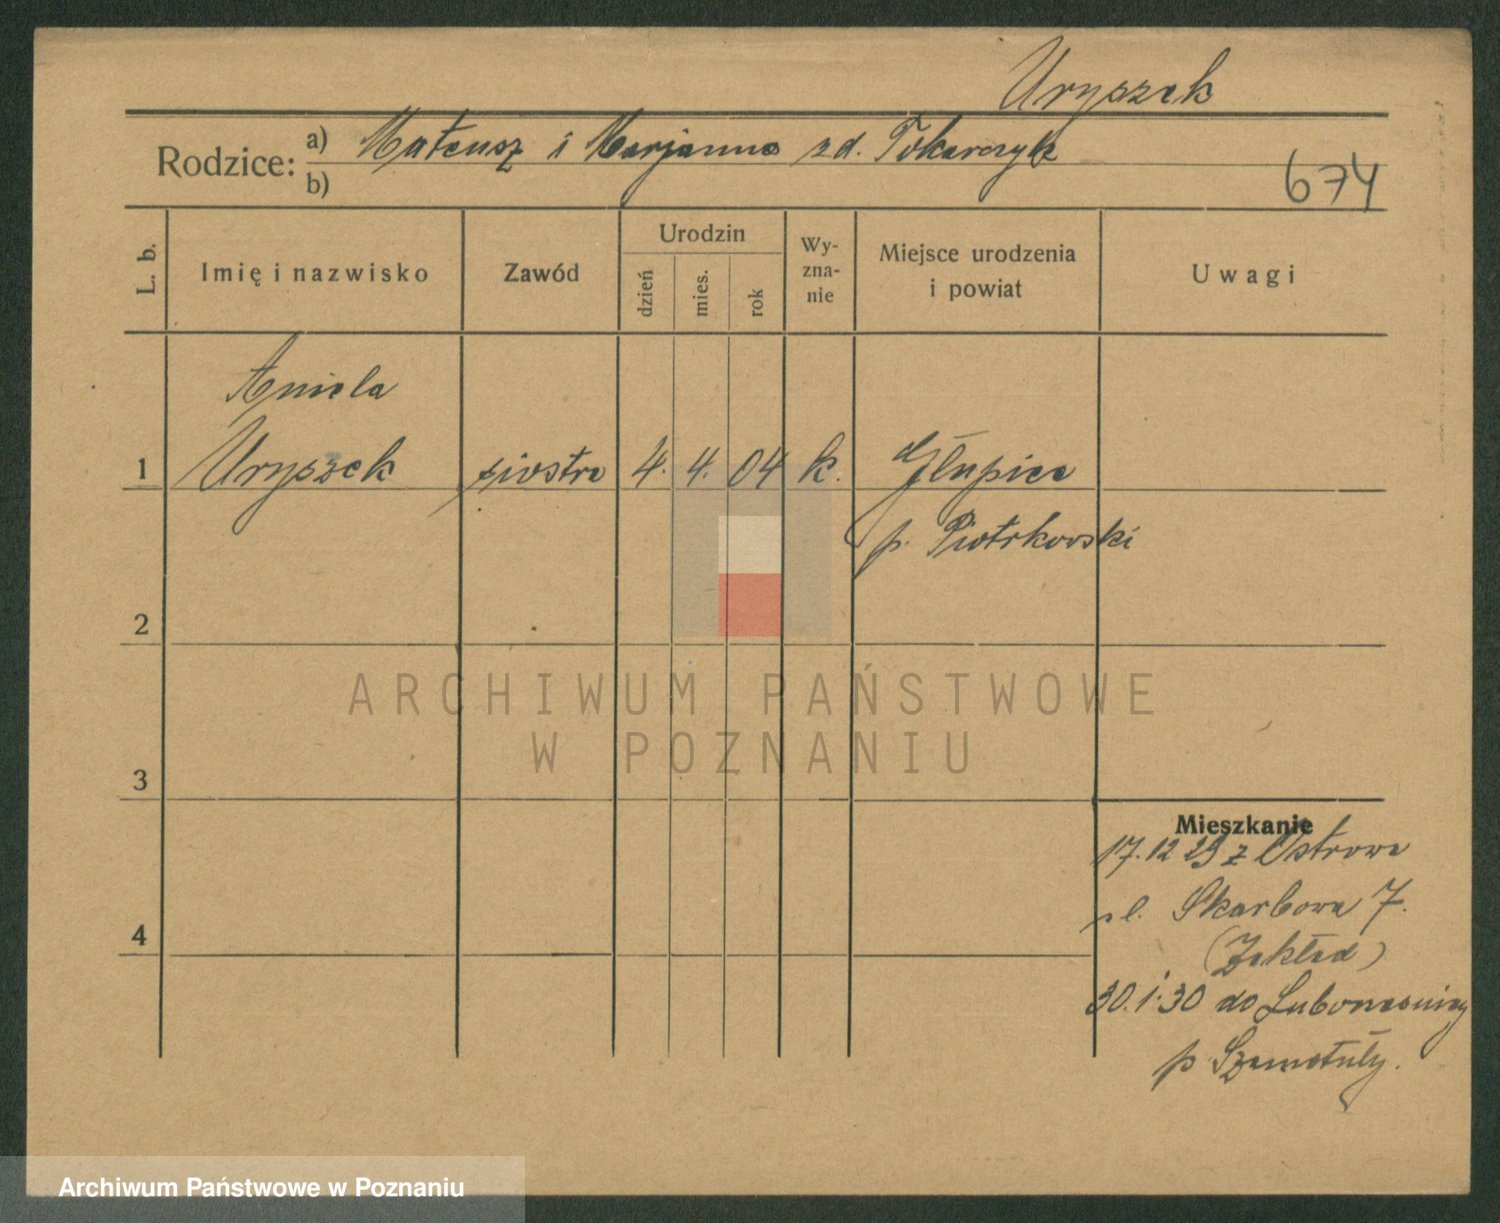 Uryszek
Rodzice: a) Mateusz i Marjanna zd. Tokarczyk
b)
674
L. b.
Imię i nazwisko
Zawód
Urodzin
dzień
mies.
rok
Wy-
zna-
nie
Miejsce urodzenia
i powiat
Uwagi
Aniela
1 Uryszek siostra 4. 4. 04 k. Głupice
p. Piotrkowski
2
ARCHIWUM PAŃSTWOWE
W POZNANIU
3
Mieszkanie
17.12 29 z Ostrowa
ul. Skarbowa 7.
4
(Zakład)
30.1.30 do
p Szamotuły.
Archiwum Państwowe w Poznaniu